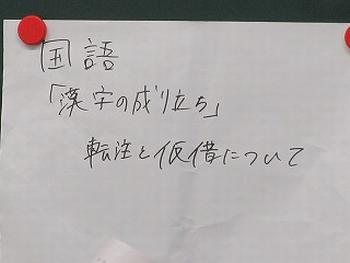 国語
「漢字の成り立ち」
転注と仮借について